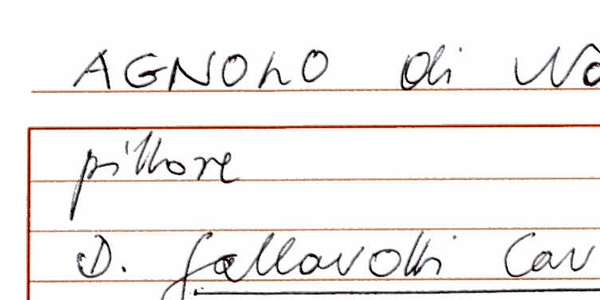 AGNOLO di
pittore
D. Gallavotti Cav